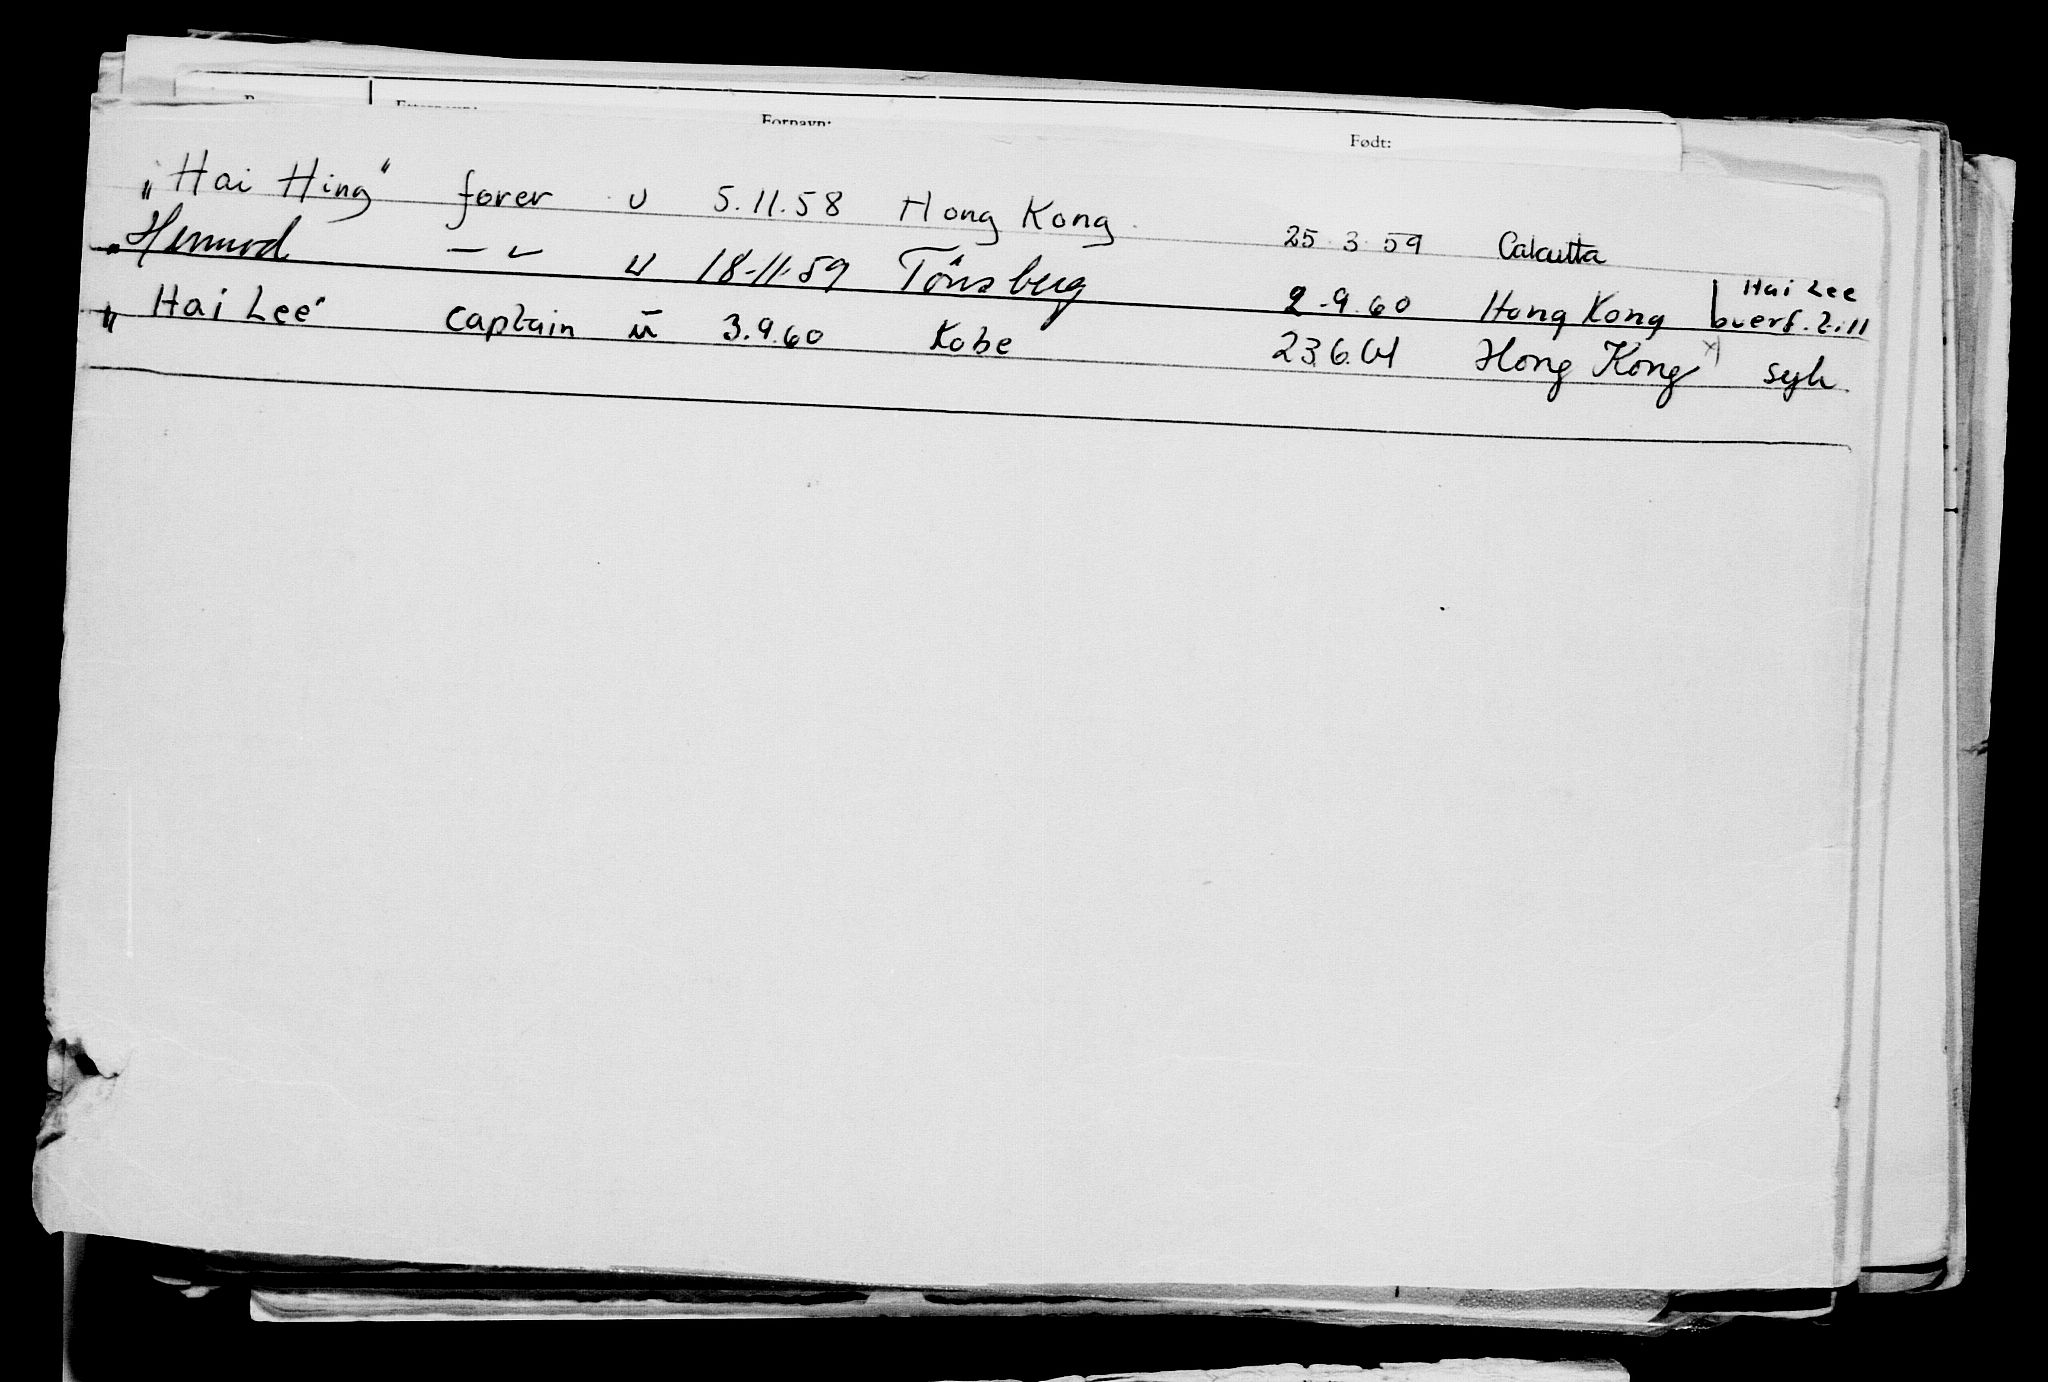 Etternavn: Fornavn: Født:
„Hai Hing" fører u 5.11.58 Hong Kong 25.3.59 Calcutta
„ — " — u 18-11-59 Tönsberg 2.9.60 Hong Kong Hai Lee
overf. till
„Hai Lee" captain u 3.9.60 Kobe 23.6.61 Hong Kong x) syk